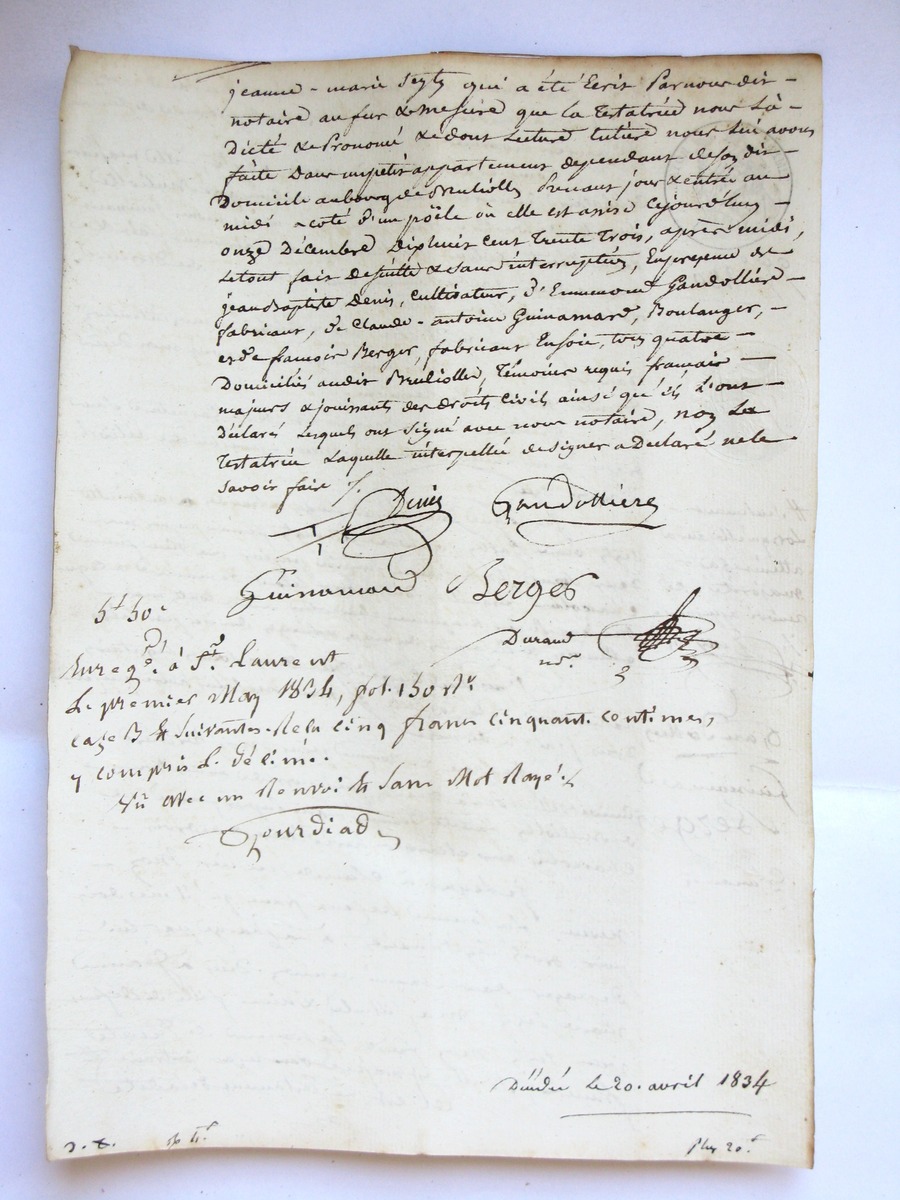 jeanne-marie Seyty qui a été Ecrit Par nous dit
notaire au fur & mesure que la Testatrice nous l'a
Dicté & Prononcé & dont Lecture Entière nous lui avons
faite Dans un petit appartement dependant de son dit
Domicile au bourg de Brulliolles Prenant jour & entrée au
midi a coté d'un poële où elle est assise Cejourd'huy
onze Décembre Dix huit Cent Trente Trois, après midi,
Le tout fait de suitte & sans interruption, En presence de
jean Baptiste Denis, Cultivateur, d'Ennemond Gandollière
fabricant, de Claude-antoine Guinamard, Boulanger,
et de francois Berger, fabricant En soie, tous quatre
Domiciliés audit Brulliolles, Témoins requis francais
majeurs & jouissants des droits Civils ainsi qu'ils L'ont
Déclaré Lesquels ont signé avec nous notaire, non La
Testatrice Laquelle interpellée de signer a Declaré ne le
savoir faire ./.
Denis Gandollière
Guinamard Berger
5f 50c
Durand
nre
Enregé. à St. Laurent
Le premier May 1834, fol. 130 Ro.
case 3 & Suivantes. Recu cinq francs cinquant. centimes,
y compris L. décime.
Vû avec un Renvoi & Sans Mot Rayé
Gourdiad
Le 20. avril 1834